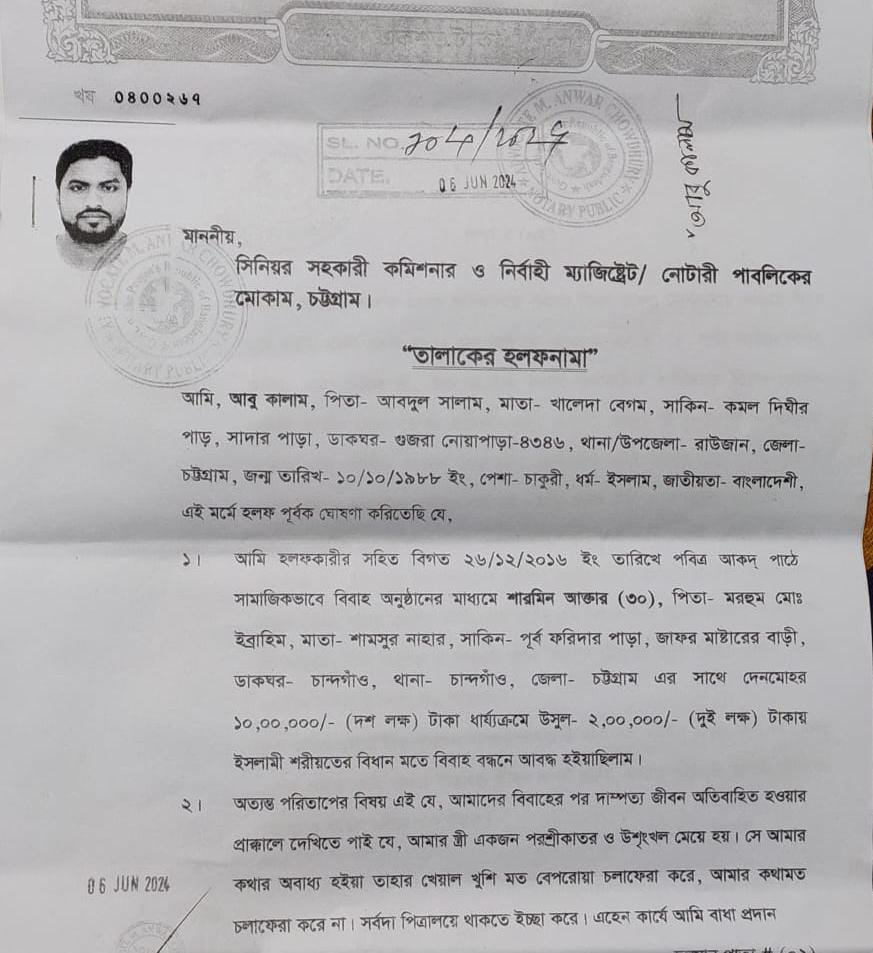 খব ০৪০০২৬৭
SL. NO.
DATE. 06 JUN 2024
M. ANWAR CHOWDHURY
NOTARY PUBLIC
আবু কালাম
মাননীয়,
সিনিয়র সহকারী কমিশনার ও নির্বাহী ম্যাজিষ্ট্রেট/ নোটারী পাবলিকের
মোকাম, চট্টগ্রাম।
“তালাকের হলফনামা”
আমি, আবু কালাম, পিতা- আবদুল সালাম, মাতা- খালেদা বেগম, সাকিন- কমল দিঘীর
পাড়, সাদার পাড়া, ডাকঘর- গুজরা নোয়াপাড়া-৪৩৪৬, থানা/উপজেলা- রাউজান, জেলা-
চট্টগ্রাম, জন্ম তারিখ- ১০/১০/১৯৮৮ ইং, পেশা- চাকুরী, ধর্ম- ইসলাম, জাতীয়তা- বাংলাদেশী,
এই মর্মে হলফ পূর্বক ঘোষণা করিতেছি যে,
১। আমি হলফকারীর সহিত বিগত ২৬/১২/২০১৬ ইং তারিখে পবিত্র আকদ্ পাঠে
সামাজিকভাবে বিবাহ অনুষ্ঠানের মাধ্যমে শারমিন আক্তার (৩০), পিতা- মরহুম মোঃ
ইব্রাহিম, মাতা- শামসুর নাহার, সাকিন- পূর্ব ফরিদার পাড়া, জাফর মাষ্টারের বাড়ী,
ডাকঘর- চান্দগাঁও, থানা- চান্দগাঁও, জেলা- চট্টগ্রাম এর সাথে দেনমোহর
১০,০০,০০০/- (দশ লক্ষ) টাকা ধার্য্যক্রমে উসুল- ২,০০,০০০/- (দুই লক্ষ) টাকায়
ইসলামী শরীয়তের বিধান মতে বিবাহ বন্ধনে আবদ্ধ হইয়াছিলাম।
২। অত্যন্ত পরিতাপের বিষয় এই যে, আমাদের বিবাহের পর দাম্পত্য জীবন অতিবাহিত হওয়ার
প্রাক্কালে দেখিতে পাই যে, আমার স্ত্রী একজন পরশ্রীকাতর ও উশৃংখল মেয়ে হয়। সে আমার
কথার অবাধ্য হইয়া তাহার খেয়াল খুশি মত বেপরোয়া চলাফেরা করে, আমার কথামত
চলাফেরা করে না। সর্বদা পিত্রালয়ে থাকতে ইচ্ছা করে। এহেন কার্যে আমি বাধা প্রদান
06 JUN 2024